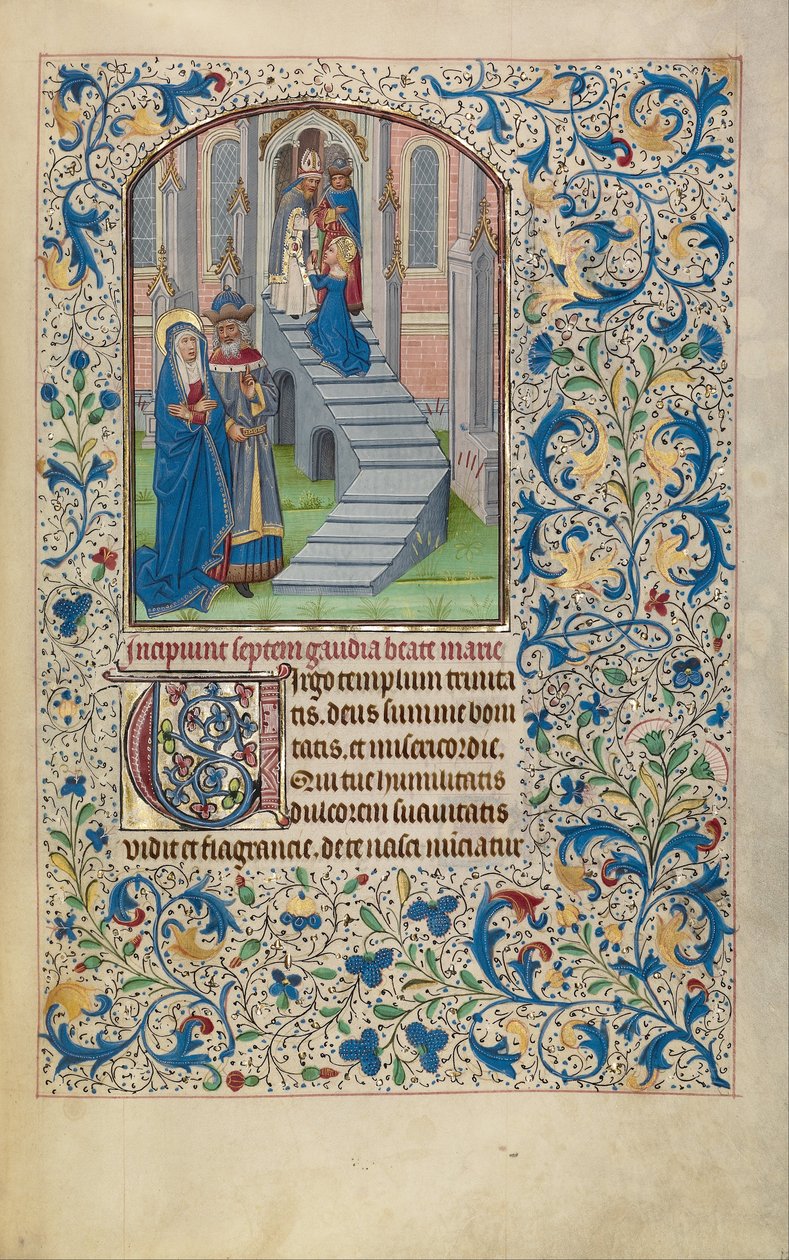 Incipiunt septem gaudia beate marie
Virgo templum trinita
tis. deus summe boni
tatis. et misericordie.
Qui tue humilitatis
dulcorem suauitatis
vidit et flagrancie. de te nasci nūciatur